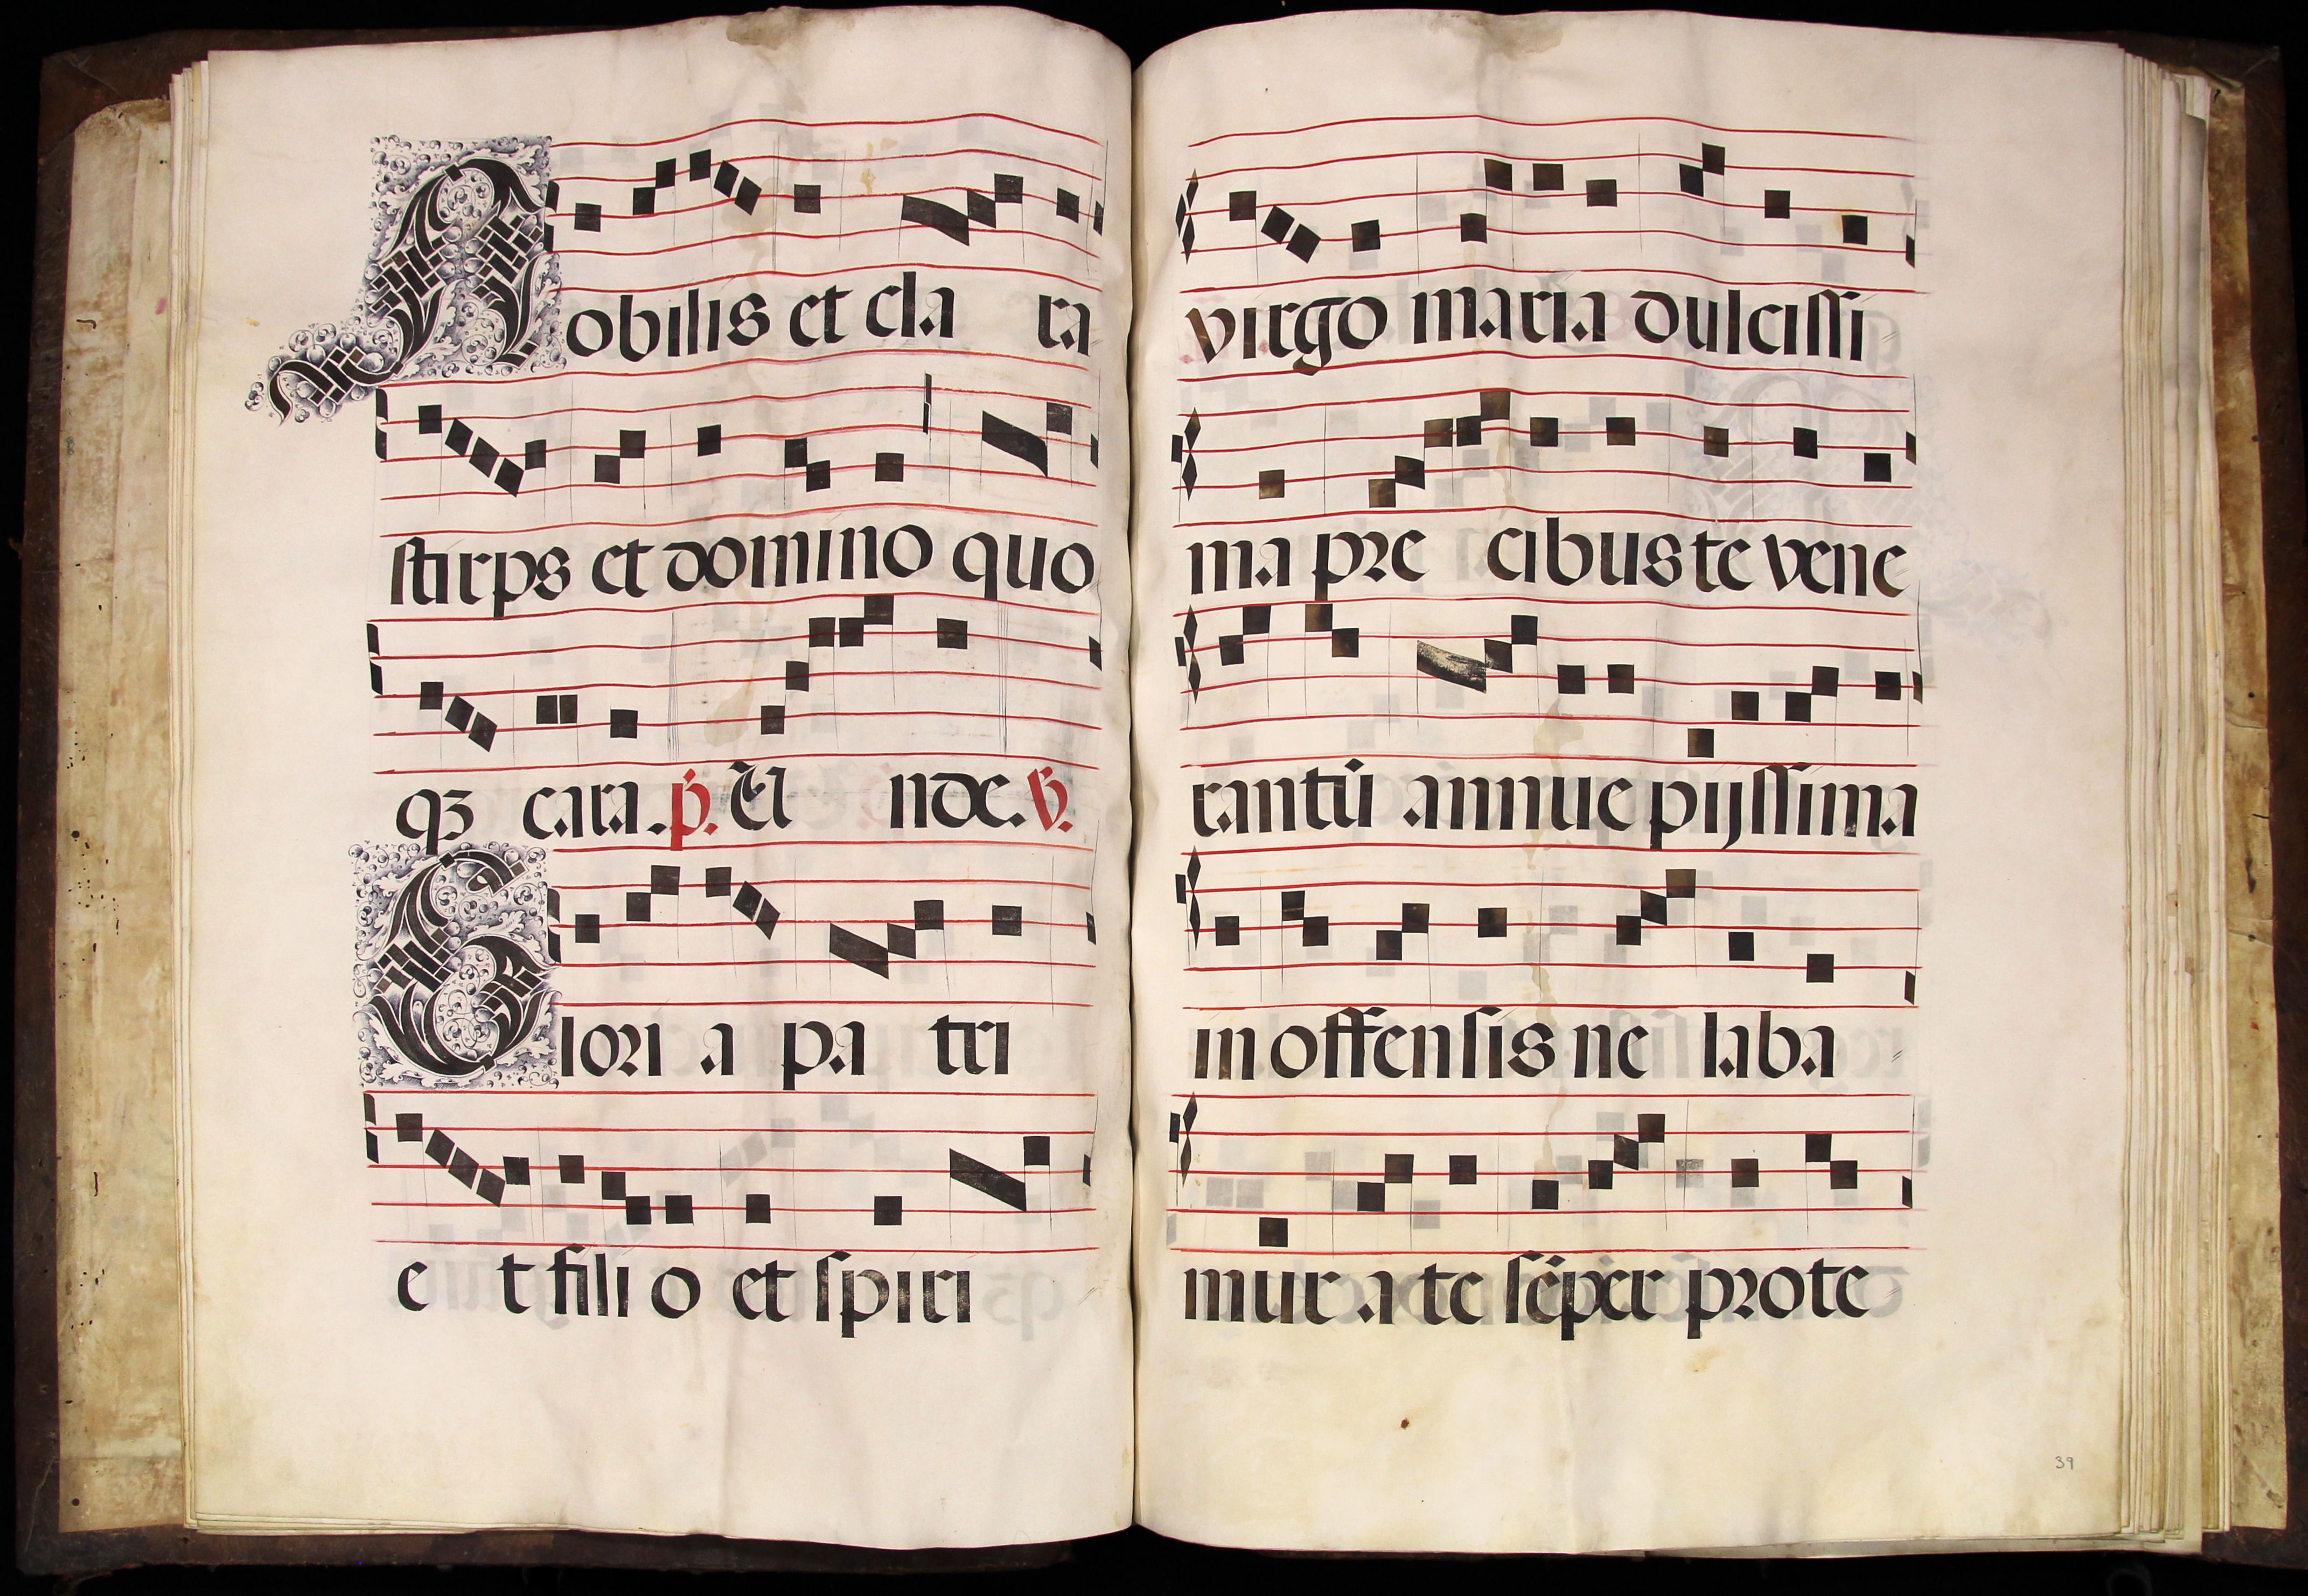 Nobilis et cla ra
stirps et domino quo
qꝫ cara. p̄. El nde. ℣.
Glori a pa tri
e t fili o et spiri
virgo maria dulcissi
ma pre cibus te vene
rantū annue pijssima
in offensis ne laba
mur a te sēper prote
39